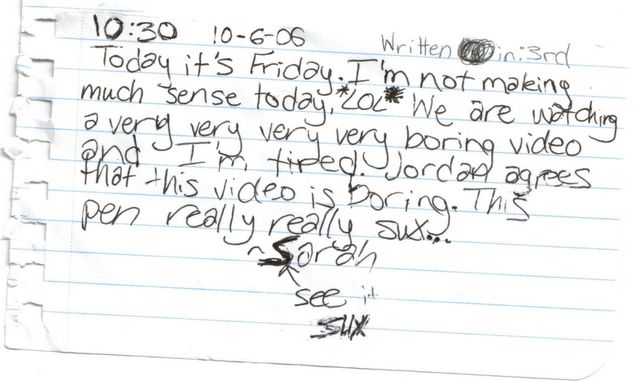 10:30 10-6-06 Written in: 3rd
Today it's Friday. I'm not making
much sense today. *LOL* We are watching
a very very very very boring video
and I'm tired. Jordan agrees
that this video is boring. This
pen really really sux...
~Sarah
see it
sux